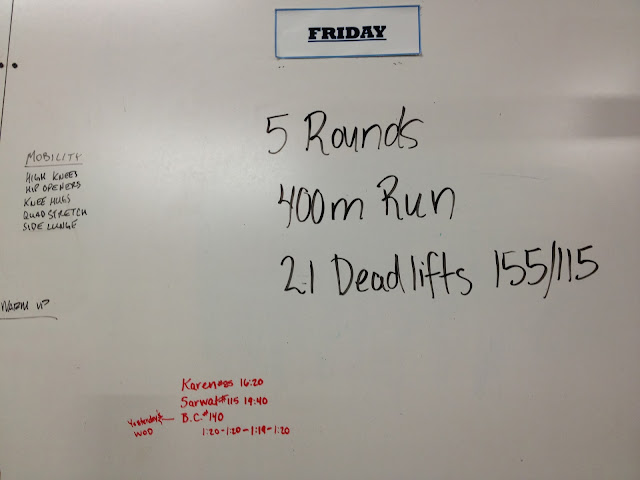 FRIDAY
5 Rounds
400m Run
21 Deadlifts 155/115
MOBILITY
HIGH KNEES
HIP OPENERS
KNEE HUGS
QUAD STRETCH
SIDE LUNGE
WARM UP
16:20
Sarwat#115 19:40
B.C.#140
Yesterday's
WOD
1:20-1:20-1:19-1:20